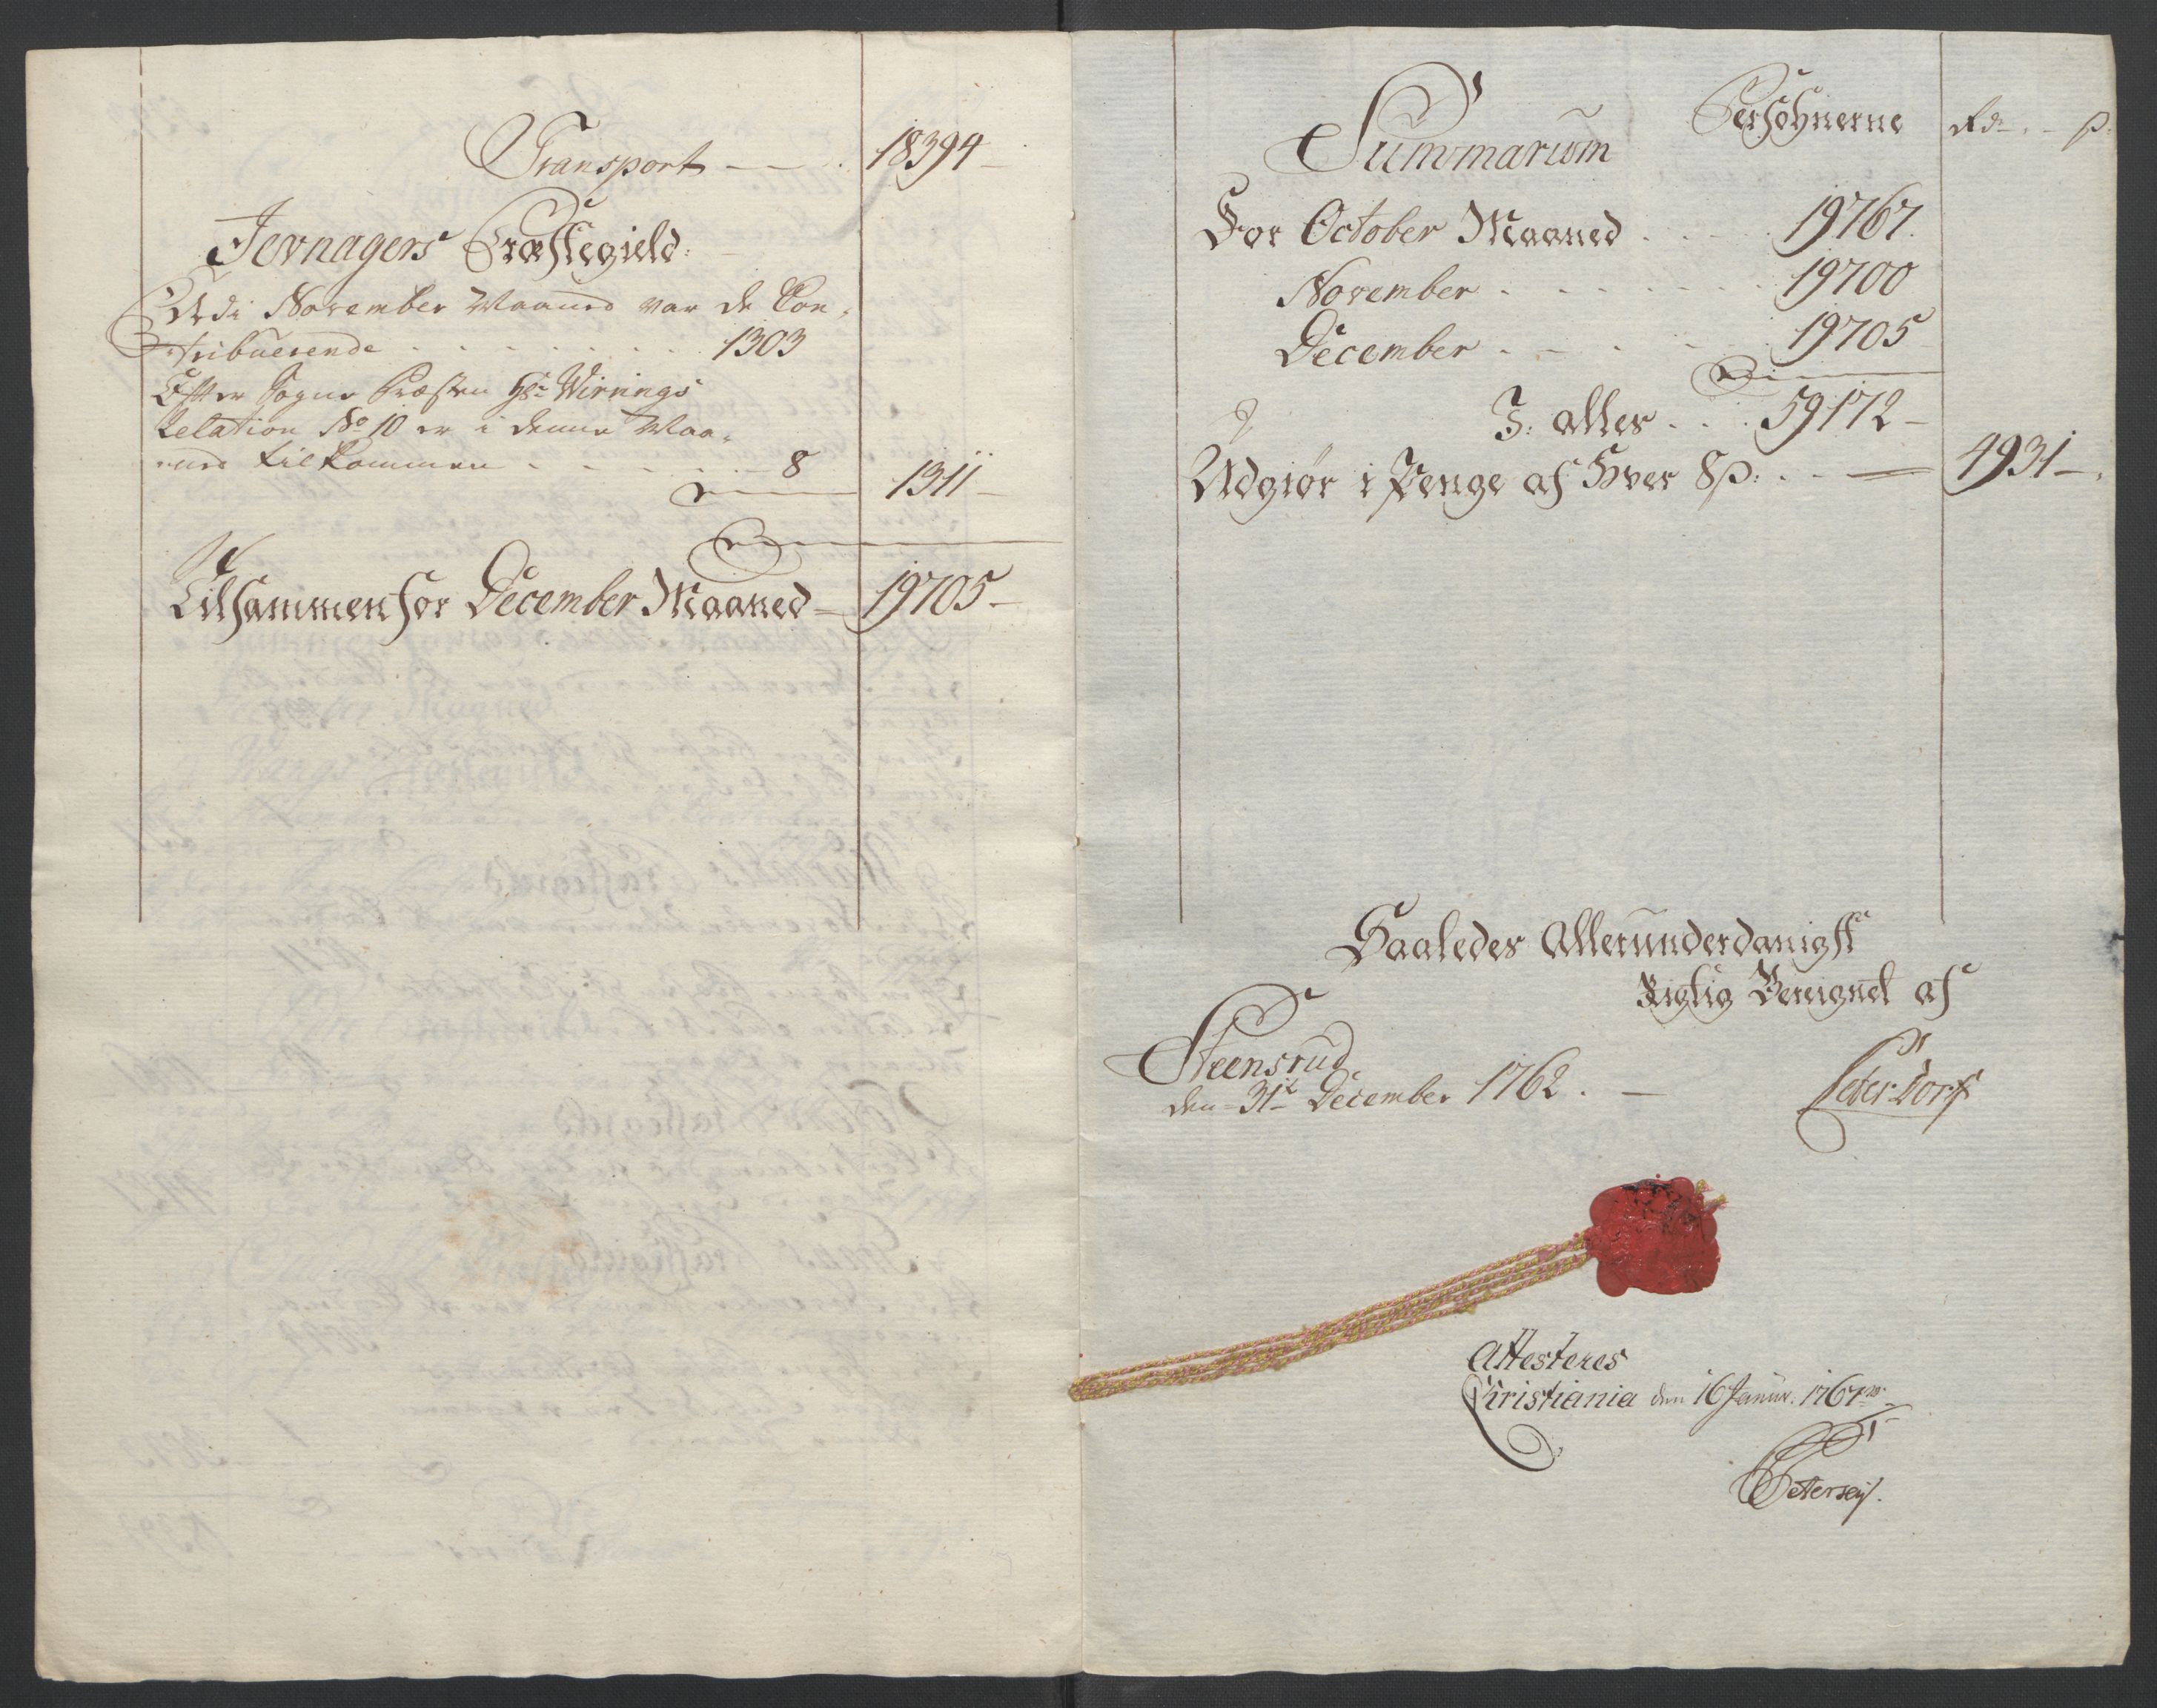 Transport — . 18394 —
Jevnagers Præstegield:
Udi November Maaned var de Con-
tribuerende . . . . . . . 1303
Efter Sogne Præsten Hr: Wirrings
Relation No 10 er i denne Maa-
ned tilkommen . . . . . 8
1311 —
Tilsammen for December Maaned — 19705 —
Summarium
Persohnerne
Rd . — β.
For October Maaned . . . . 19767.
November . . . . . . . 19700
December . . . . . 19705
I: alles . . . 59172 —
Udgiør i Penge af Hver 8 β: . — 4931 — .
Saaledes Allerunderdanigst
Rigtig Beregnet af
Steensrud
den 31te December 1762 . — Peter Dorf
Attesteres
Christiania den 16 Janur. 1767
Petersen.